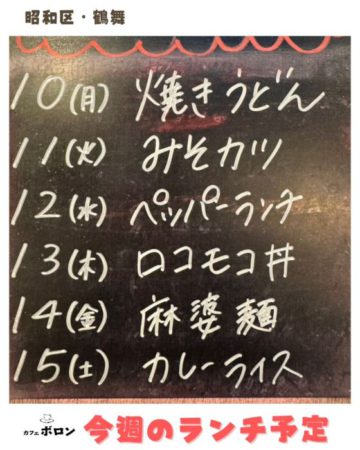 昭和区・鶴舞
10(月) 焼きうどん
11(火) みそカツ
12(水) ペッパーランチ
13(木) ロコモコ丼
14(金) 麻婆麺
15(土) カレーライス
カフェ ボロン
今週のランチ予定